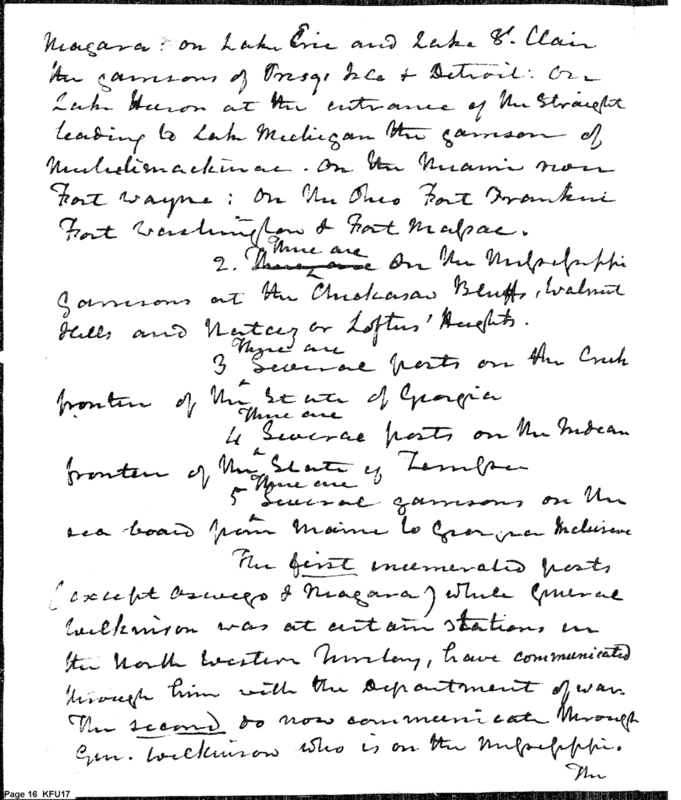 Niagara: on Lake Erie and Lake St. Clair
the garrisons of Presqe Isle & Detroit: On
Lake Huron at the entrance of the Straight
leading to Lake Michigan the garrison of
Michilimackinac. On the Miami river
Fort Wayne: On the Ohio Fort Franklin
Fort Washington & Fort Massac.
There are
2. There are On the Mississippi
garrisons at the Chickasaw Bluffs, Walnut
Hills and Natchez or Loftus' Heights.
There are
3 Several posts on the Creek
frontier of the State of Georgia
There are
4 Several posts on the Indian
frontier of the State of Tennessee
There are
5 Several garrisons on the
sea board from Maine to Georgia inclusive
The first enumerated posts
(except Oswego & Niagara) while General
Wilkinson was at certain stations in
the North Western Territory, have communicated
through him with the Department of war.
The second do now communicate through
Gen. Wilkinson who is on the Mississippi.
The
Page 16 KFU17